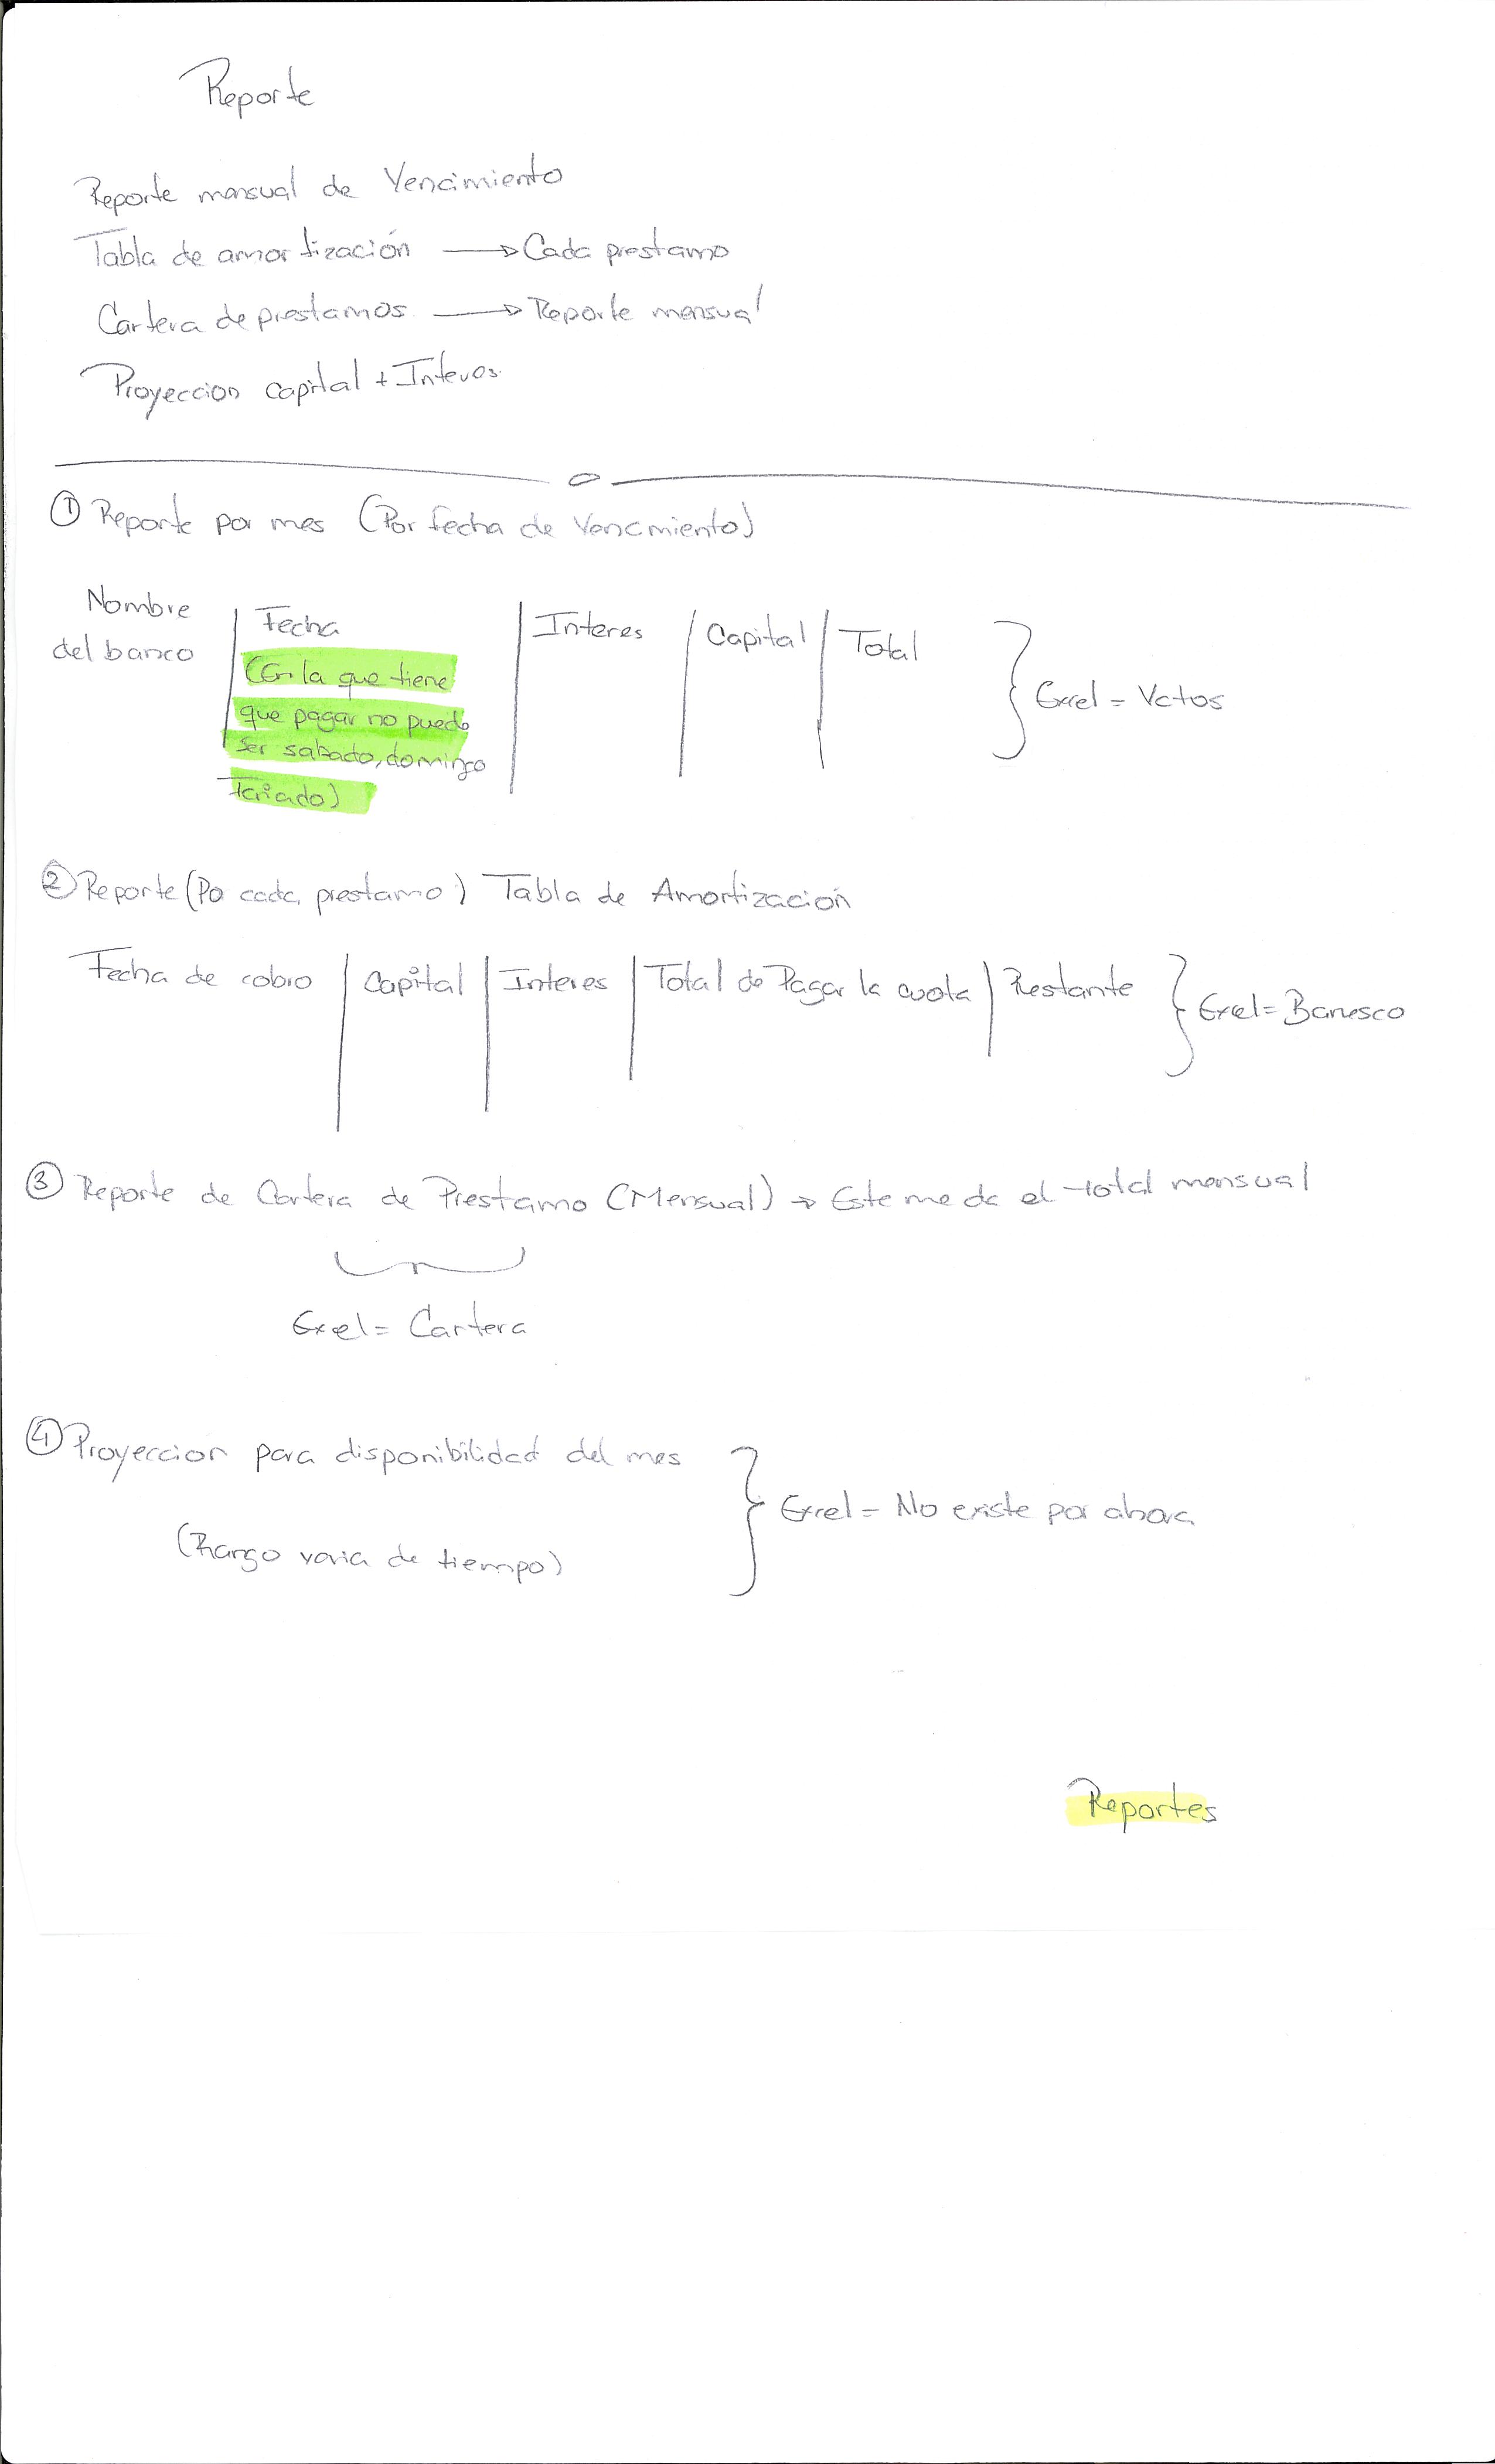 Reporte
Reporte mensual de Vencimiento
Tabla de amortización → Cada prestamo
Cartera de prestamos → Reporte mensual
Proyeccion capital + Interes
① Reporte por mes (Por fecha de Vencimiento)
Nombre del banco | Fecha | Interes | Capital | Total } Excel = Vctos
(En la que tiene
que pagar no puede
ser sabado, domingo
Feriado)
② Reporte (Po cada prestamo) Tabla de Amortización
Fecha de cobro | Capital | Interes | Total de Pagar la cuota | Restante } Excel = Banesco
③ Reporte de Cartera de Prestamo (Mensual) → Este me da el total mensual
Exel = Cartera
④ Proyeccion para disponibilidad del mes } Excel = No existe por ahora
(Rango varia de tiempo)
Reportes